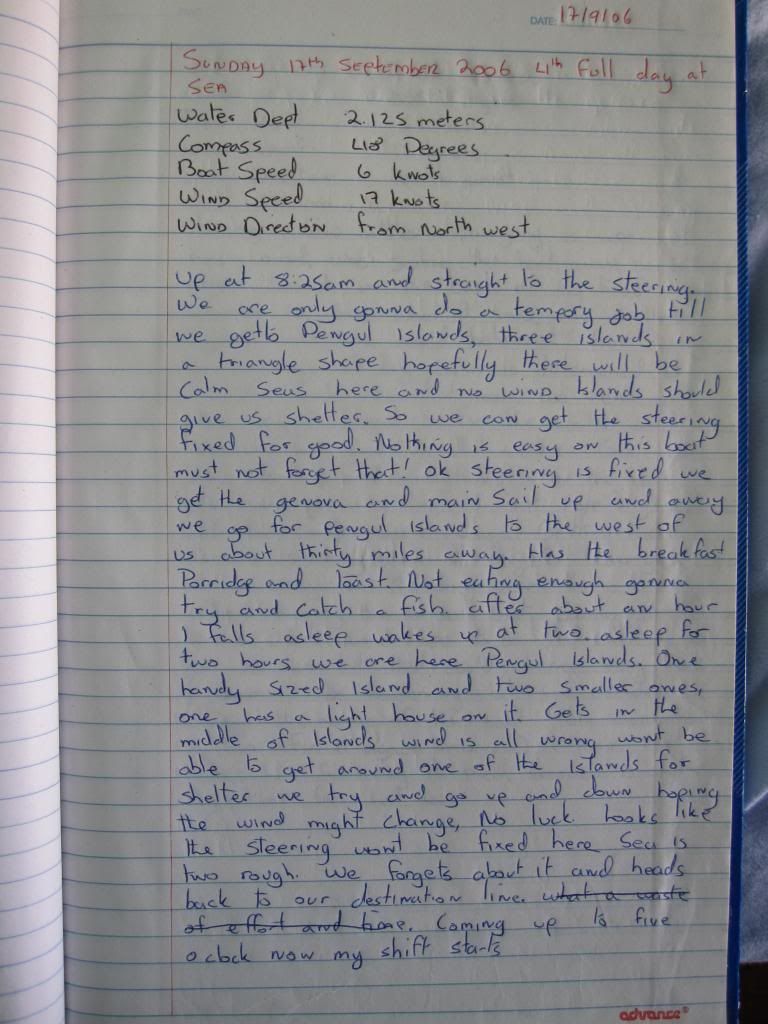 DATE: 17/9/06
Sunday 17th September 2006 4th full day at
Sea
Water Dept 2.125 meters
Compass 48 Degrees
Boat Speed 6 knots
Wind Speed 17 knots
Wind Direction from North west
up at 8:25am and straight to the steering.
We are only gonna do a tempory job till
we getto Pengul Islands, three islands in
a triangle shape hopefully there will be
Calm Seas here and no wind. Islands should
give us shelter. So we can get the steering
fixed for good. Nothing is easy on this boat
must not forget that! ok steering is fixed we
get the genova and main Sail up and away
we go for pengul Islands to the west of
us about thirty miles away. Has the breakfast
Porridge and toast. Not eating enough gonna
try and catch a fish. after about an hour
I falls asleep wakes up at two. asleep for
two hours we are here Pengul Islands. One
handy sized Island and two smaller ones,
one has a light house on it. Gets in the
middle of Islands wind is all wrong wont be
able to get around one of the Islands for
shelter we try and go up and down hoping
the wind might change, No luck. Looks like
the steering wont be fixed here Sea is
two rough. We forgets about it and heads
back to our destination line. what a waste
of effort and time. Coming up to five
o clock now my shift starts
advance®